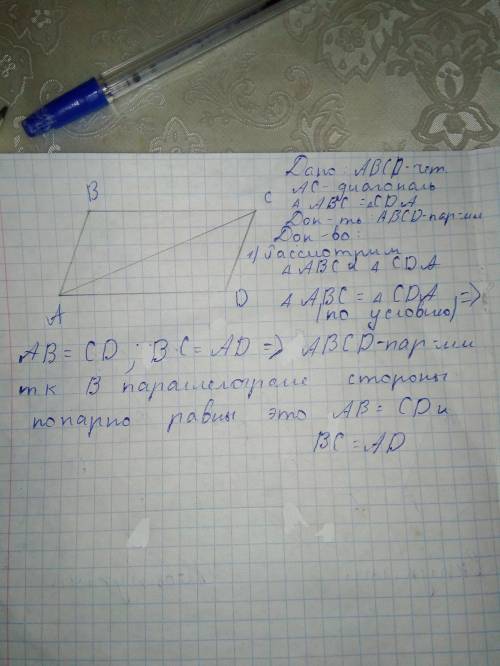 B
C
A
D
Дано: ABCD-чет.
AC-диагональ
△ ABC = △CDA
Док-ть ABCD-пар-мм
Док-во:
1) Рассмотрим
△ ABC и △ CDA
△ ABC = △ CDA =>
(по условию)
AB = CD ; BC = AD => ABCD-пар-мм
тк в параллелограме стороны
попарно равны это AB = CD и
BC = AD